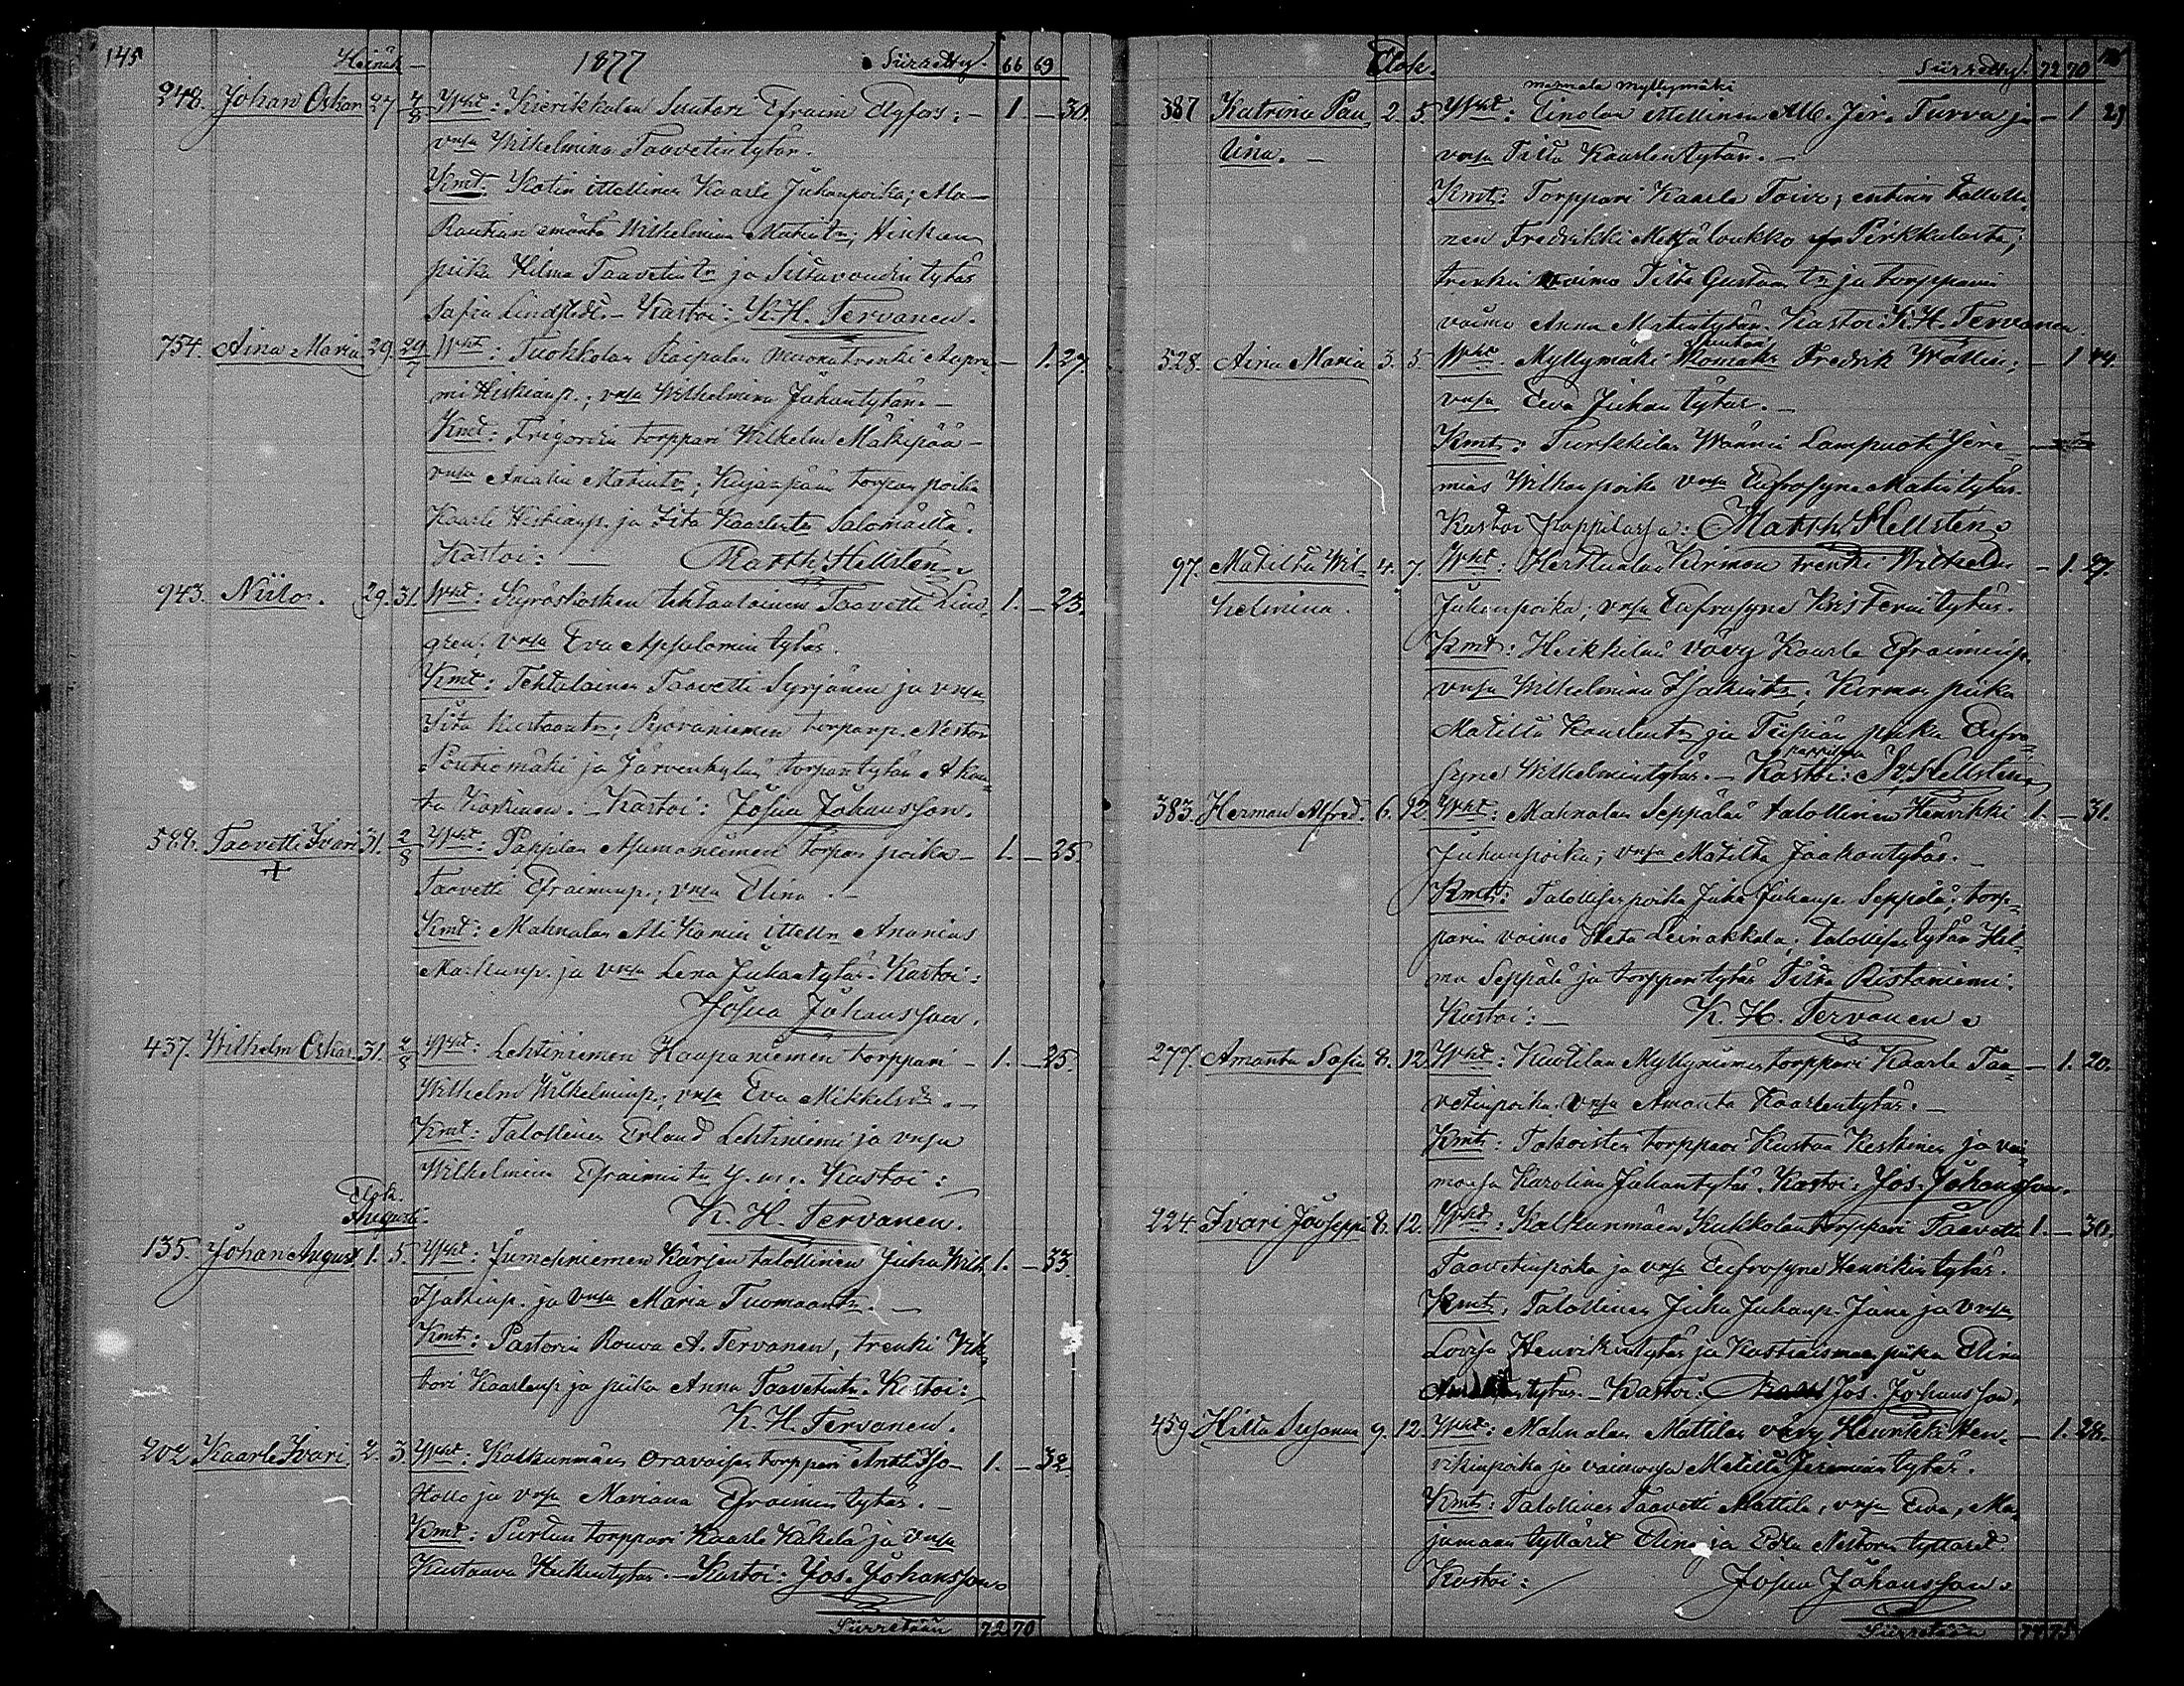 145 Heinäk. 1877 Siirretty. 66 69
248. Johan Oskar 27 4/8 Wht: Kierikkalan Suutari Efraim Elgfors; – 1. – 30.
vnsa Wilhelmina Taavetintytär.
Kmt: Kotin ittellinen Kaarle Juhanpoika; Ala-
Rautian emäntä Wilhelmina Matintr;
piika Hilma Taavetintr ja tytär
Sofia Lindstedt. – Kastoi: K. H. Tervanen.
754. Aina Maria 29. 29/7 Wht: Tuokkolan Raipalan muonatrenki – 1. 27.
Hiskianp.; vnsa Wilhelmina Juhantytär. –
Kmt: torppari Wilhelm Mäkipää –
vnsa Amalia Matintr; torpan poika
Kaarle Hiskianp. ja Iita Kaarlentr
Kastoi: – Matth. Hellsten.
943. Niilo. 29. 31. Wht: Kyröskosken tehtaalainen Taavetti Lin- 1. – 23.
gren; vnsa Eva Apsalomintytär.
Kmt: Tehtalainen Taavetti Syrjänen ja vnsa
Iita Kustaantr; torpanp. Nestor
ja Järvenkylän torpantytär Aman-
ta Koskinen. – Kastoi: Josua Johansson.
588. Taavetti Ivari 31. 2/8 Wht: Pappilan torpan poika – 1. – 25.
+ Taavetti Efraiminp.; vnsa Elina. –
Kmt: Mahnalan Ali ittelln Ananias
Markunp. ja vnsa Lena Juhantytär. Kastoi:
Josua Johansson.
437. Wilhelm Oskar 31. 2/8 Wht: Lehtiniemen Haapaniemen torppari – 1. – 25.
Wilhelm Wilhelminp.; vnsa Eva Mikkelintr. –
Kmt: Talollinen Erland Lehtiniemi ja vnsa
Wilhelmina Efraimintr y. m. Kastoi:
K. H. Tervanen.
Elok.
Augusti.
135. Johan August 1. 5. Wht: Jumesniemen Kärjen talollinen Juha Wilh. 1. – 33.
Isakinp. ja vnsa Maria Tuomaantr. –
Kmt: Pastorin Rouva A. Tervanen, trenki Vik-
tori Kaarlenp. ja piika Anna Taavetintr. Kastoi:
K. H. Tervanen.
202 Kaarle Ivari 2. 3. Wht: Kalkunmäen Oravaisen torppari Antti Iso- 1. – 32
Hollo ja vnsa Mariana Efraimintytär. –
Kmt: torppari Kaarle Käkelä ja vnsa
Kustaava Heikintytär. – Kastoi: Jos. Johansson.
Siirretään 72 70
Elok. Siirretty. 72 70
Mahnala Myllymäki
387 Katrina Pau- 2. 5. Wht: Einolan ittellinen Alb. Jer. Turva ja – 1 29
lina. – vnsa Tilta Kaarlentytär. –
Kmt: Torppari Kaarle Toivo; entinen talolli-
nen Fredrikki Metsäloukko Pirkkalasta;
trenkin vaimo Tilta Gustavstr ja torpparin
vaimo Anna Matintytär. Kastoi K. H. Tervanen.
528. Aina Maria 3. 5. Wht: Myllymäki Fredrik Wallin; – 1 44.
vnsa Eva Juhantytär. –
Kmt: Turkkilan Lampuoti Jere-
mias Wilhanpoika vnsa Eufrosyne Matintytär.
Kastoi pappilassa: Matth. Hellstén.
97. Matilta Wil- 4. 7. Wht: Herttualan Kirmon trenki Wilhelm – 1. 27.
helmina. Juhanpoika; vnsa Eufrosyne Kristerintytär.
Kmt: Heikkilän vävy Kaarle Efraiminp.
vnsa Wilhelmina Isakintr; Kirmon piika
Matilta Kaarlentr ja piika Eufro-
syne Wilhelmintytär. – Kastoi: pappilassa M. Hellsten
383. Herman Alfred. 6. 12. Wht: Mahnalan Seppälän talollinen Henrikki 1. – 31.
Juhanpoika; vnsa Matilta Jaakontytär. –
Kmt: Talollisen poika Juha Juhanp. Seppälä; torp-
parin vaimo Heta Leinakkala; talollisen tytär Hil-
ma Seppälä ja torpparin tytär Tilta Ristaniemi.
Kastoi: – K. H. Tervanen.
277. Amanta Sofia 8. 12. Wht: Kuotilan Myllyniemen torppari Kaarle Taa- – 1. 20.
vetinpoika. vnsa Amanta Kaarlentytär. –
Kmt: torppari Kustaa Keskinen ja vai-
monsa Karolina Juhantytär. Kastoi: Jos. Johansson.
224. Ivari Joosseppi 8. 12. Wht: Kalkunmäen Kukkolan torppari Taavetti 1. – 30.
Taavetinpoika ja vnsa Eufrosyne Henrikintytär.
Kmt: Talollinen Juha Juhanp. ja vnsa
Lovisa Henrikintytär ja piika Elina
tytär. – Kastoi: Jos. Johansson.
459 Hilta Susanna 9. 12. Wht: Mahnalan Mattilan vävy Henrikki Hen- – 1. 28.
rikinpoika ja vaimonsa Matilta Jeremiantytär.
Kmt: Talollinen Taavetti Mattila, vnsa Eva, Ma-
jamaan tyttäret Elina ja Edla Nestorin tyttäret.
Kastoi: Josua Johansson.
Siirretään